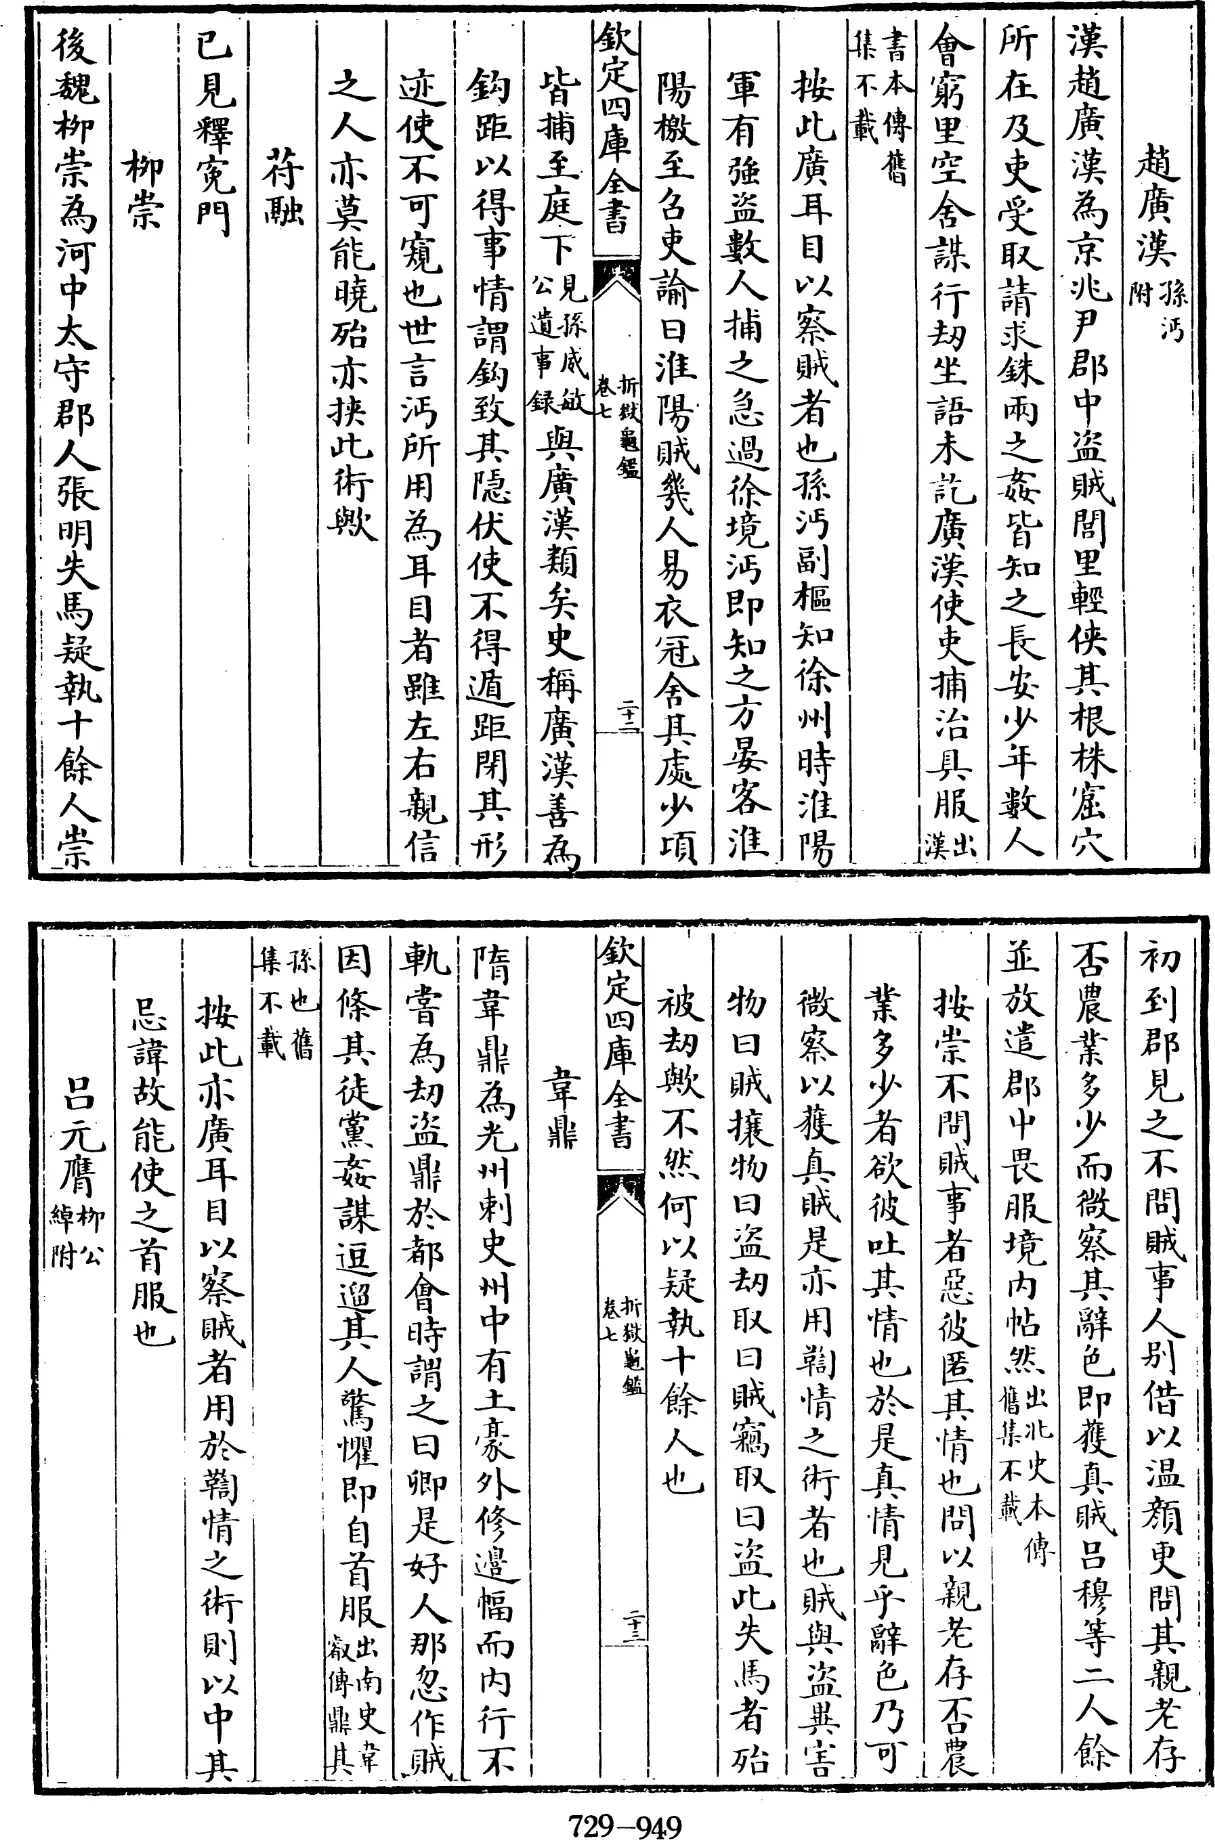 趙廣漢孫沔附
漢趙廣漢為京兆尹郡中盗賊閭里輕俠其根株窟穴
所在及吏受取請求銖兩之姦皆知之長安少年數人
會窮里空舍謀行刼坐語未訖廣漢使吏捕治具服出漢
書本傳舊集不載
按此廣耳目以察賊者也孫沔副樞知徐州時淮陽
軍有強盗數人捕之急過徐境沔即知之方宴客淮
陽檄至召吏諭曰淮陽賊幾人易衣冠舍其處少頃
欽定四庫全書
折獄龜鑑
卷七
二十二
皆捕至庭下見孫威敏公遺事録與廣漢類矣史稱廣漢善為
鈎距以得事情謂鈎致其隠伏使不得遁距閉其形
迹使不可窺也世言沔所用為耳目者雖左右親信
之人亦莫能曉殆亦挾此術歟
苻融
已見釋寃門
栁崇
後魏栁崇為河中太守郡人張明失馬疑執十餘人崇
初到郡見之不問賊事人别借以温顔更問其親老存
否農業多少而微察其辭色即獲真賊吕穆等二人餘
並放遣郡中畏服境内帖然出北史本傳舊集不載
按崇不問賊事者惡彼匿其情也問以親老存否農
業多少者欲彼吐其情也於是真情見乎辭色乃可
微察以獲真賊是亦用鞫情之術者也賊與盗異害
物曰賊攘物曰盗刼取曰賊竊取曰盗此失馬者殆
被刼歟不然何以疑執十餘人也
欽定四庫全書
折獄龜鑑
卷七
二十三
韋鼎
隋韋鼎為光州刺史州中有土豪外修邉幅而内行不
軌嘗為刼盗鼎於都會時謂之曰卿是好人那忽作賊
因條其徒黨姦謀逗遛其人驚懼即自首服出南史韋叡傳鼎其
孫也舊集不載
按此亦廣耳目以察賊者用於鞫情之術則以中其
忌諱故能使之首服也
吕元膺栁公綽附
729–949